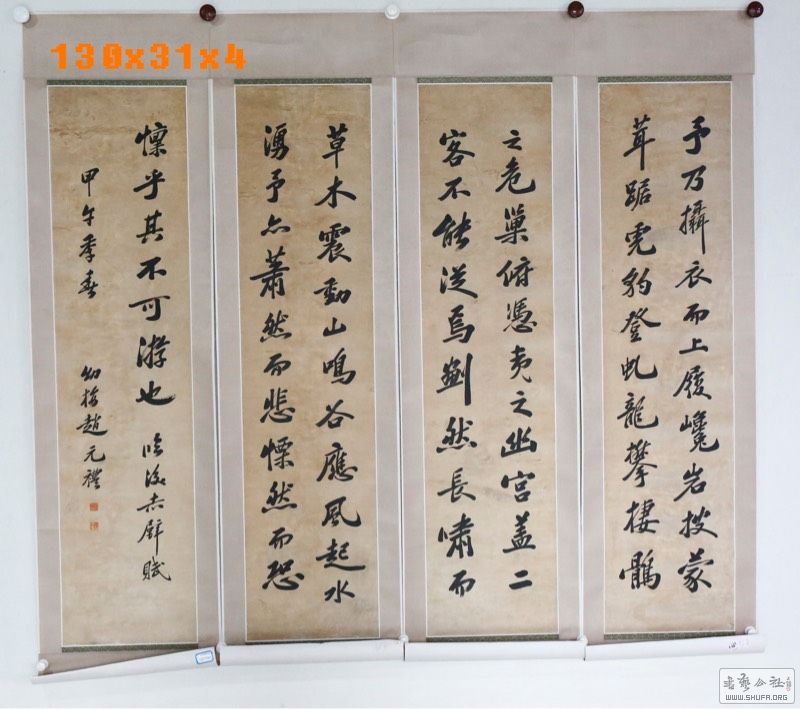 130x31x4
予乃攝衣而上履巉岩披蒙
茸踞虎豹登虬龍攀棲鶻
之危巢俯憑夷之幽宮盖二
客不能從焉劃然長嘯而
草木震動山鳴谷應風起水
湧予亦蕭然而悲慄然而恐
懍乎其不可游也 臨後赤壁賦
甲午季春 幼梅趙元禮
書藝公社
WWW.SHUFA.ORG